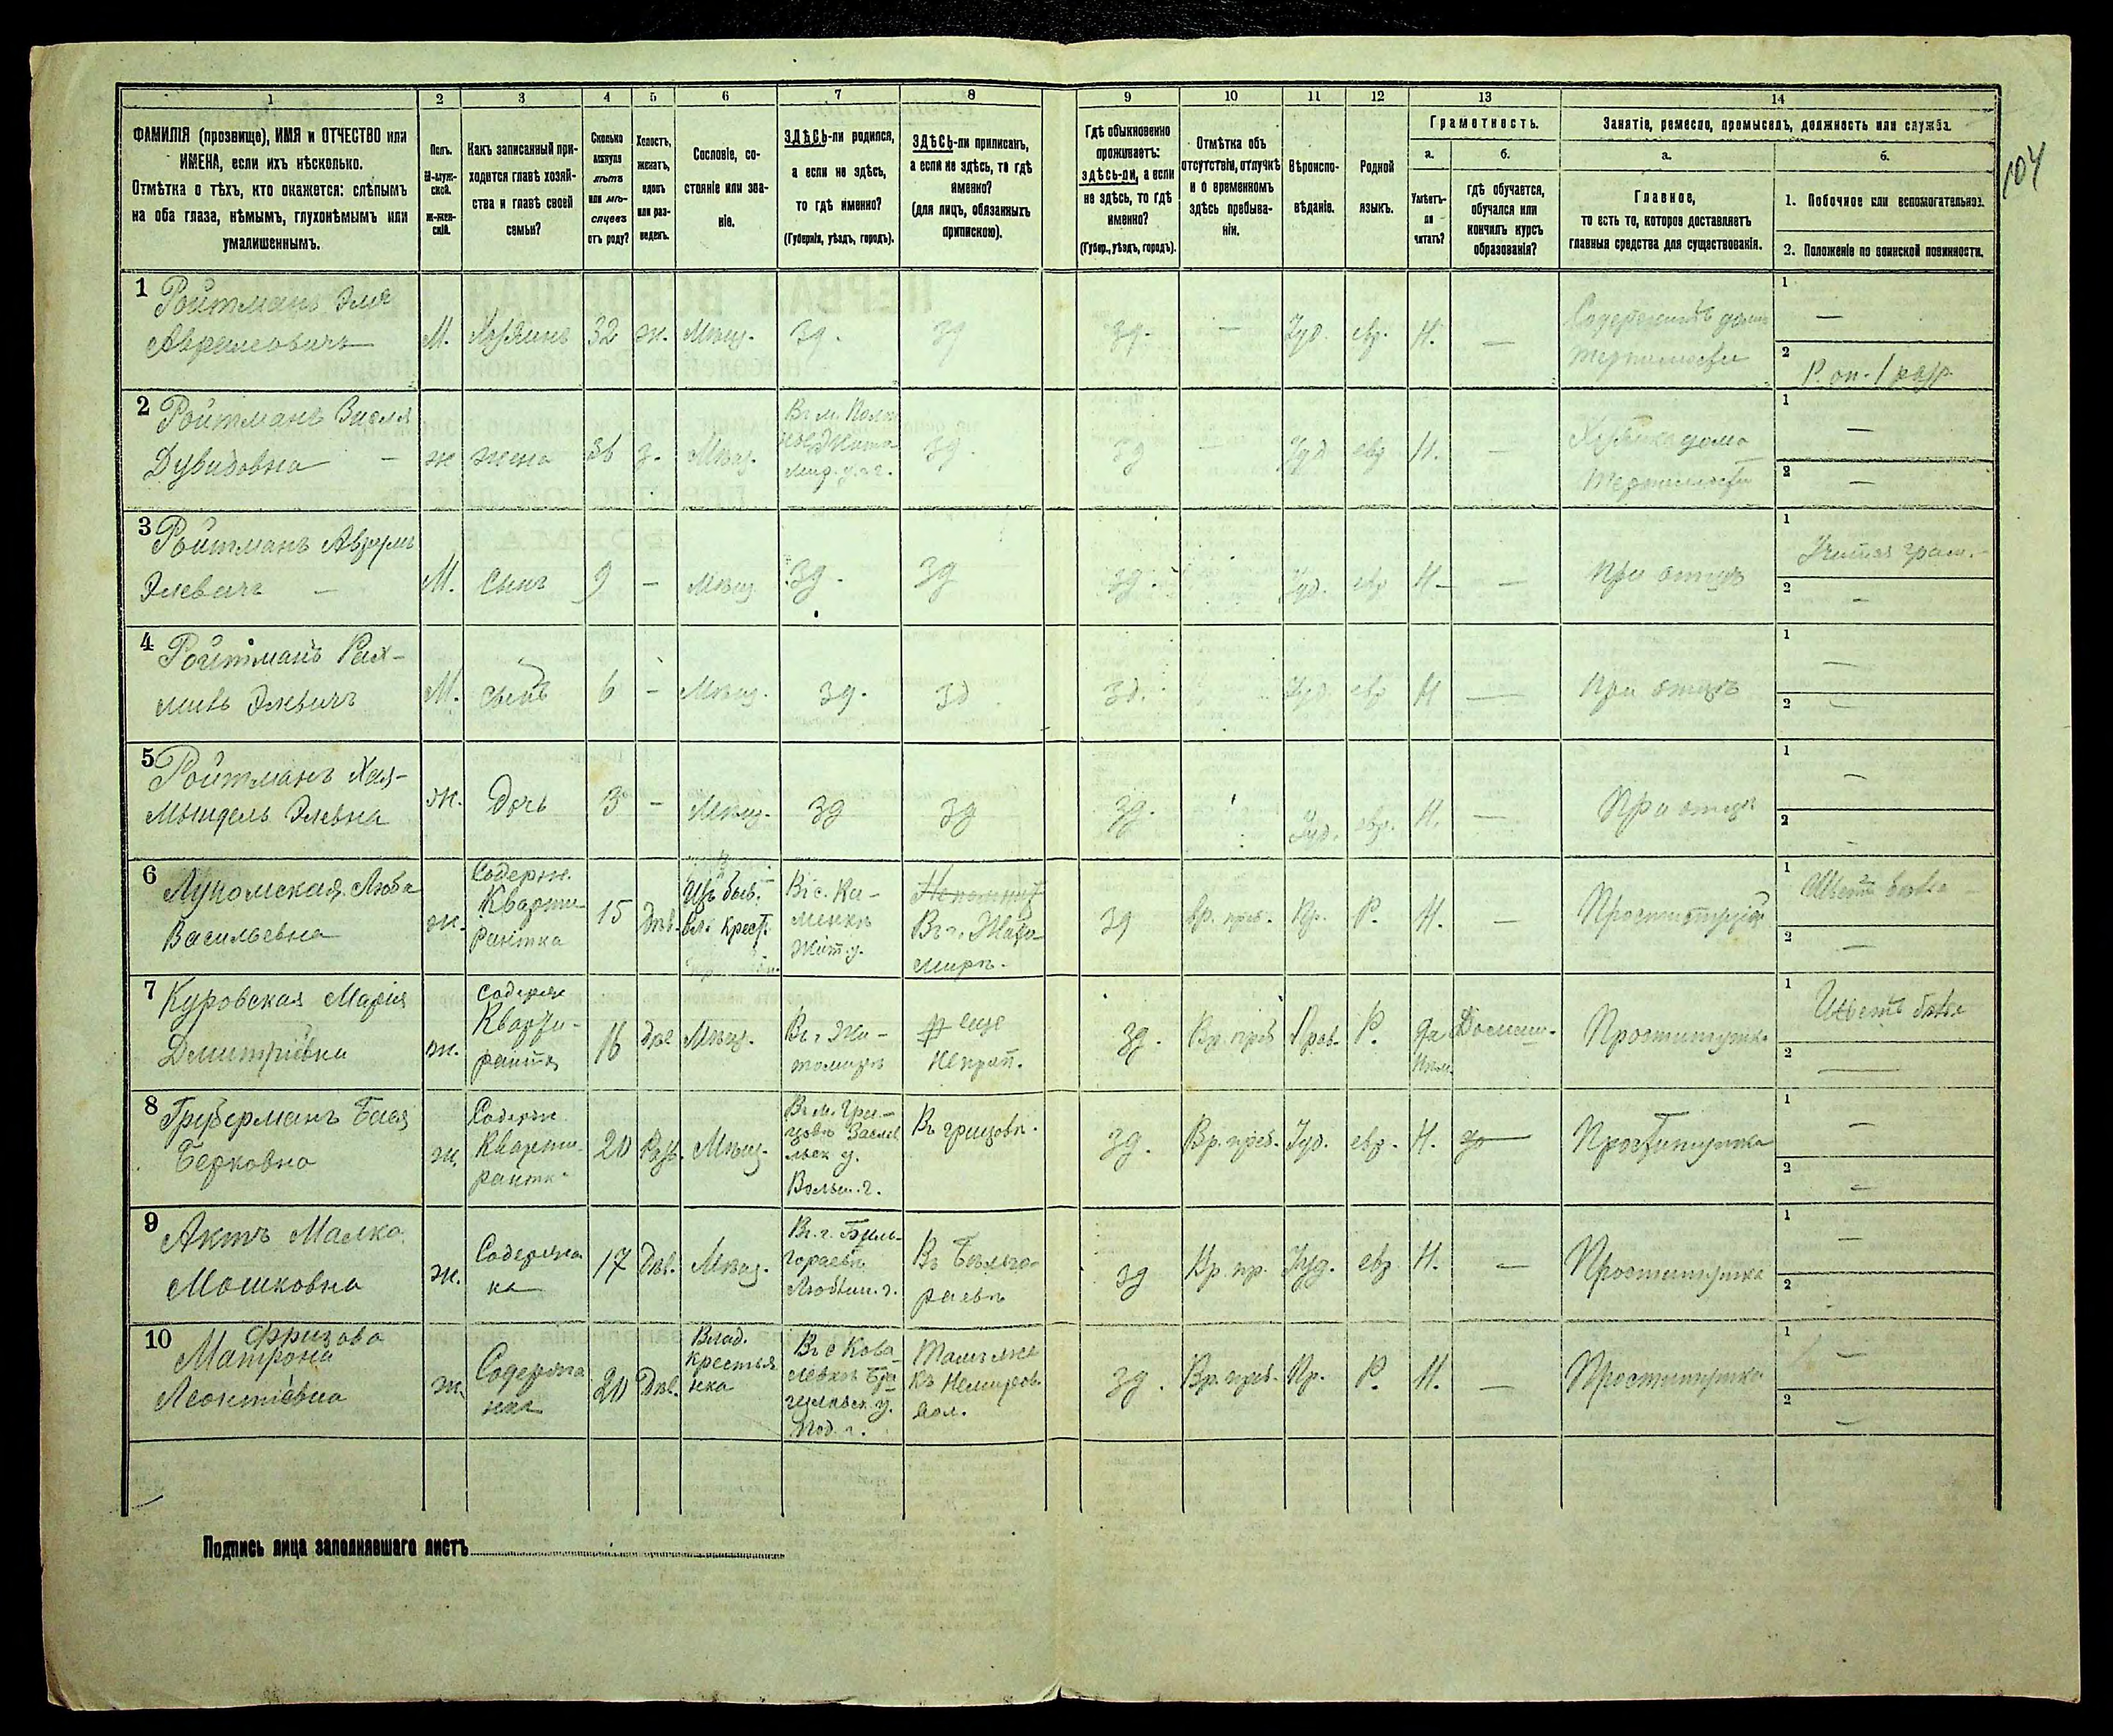 104
1 2 3 4 5 6 7 8 9 10 11 12 13 14
ФАМИЛІЯ (прозвище), ИМЯ и ОТЧЕСТВО или
ИМЕНА, если ихъ нѣсколько.
Отмѣтка о тѣхъ, кто окажется: слѣпымъ
на оба глаза, нѣмымъ, глухонѣмымъ или
умалишеннымъ.
Полъ.
М-муж-
ской.
Ж-жен-
скій.
Какъ записанный при-
ходится главѣ хозяй-
ства и главѣ своей
семьи?
Сколько
минуло
лѣтъ
или мѣ-
сяцевъ
отъ роду?
Холостъ,
женатъ,
вдовъ
или раз-
веденъ.
Сословіе, со-
стояніе или зва-
ніе.
ЗДѢСЬ-ли родился,
а если не здѣсь,
то гдѣ именно?
(Губернія, уѣздъ, городъ).
ЗДѢСЬ-ли приписанъ,
а если не здѣсь, то гдѣ
именно?
(для лицъ, обязанныхъ
припискою).
Гдѣ обыкновенно
проживаетъ:
здѣсь-ли, а если
не здѣсь, то гдѣ
именно?
(Губер., уѣздъ, городъ).
Отмѣтка объ
отсутствіи, отлучкѣ
и о временномъ
здѣсь пребыва-
ніи.
Вѣроиспо-
вѣданіе.
Родной
языкъ.
Грамотность.
а.
Умѣетъ-
ли
читать?
б.
гдѣ обучается,
обучался или
кончилъ курсъ
образованія?
Занятіе, ремесло, промыселъ, должность или служба.
а.
Главное,
то есть то, которое доставляетъ
главныя средства для существованія.
б.
1. Побочное или вспомогательное.
2. Положеніе по воинской повинности.
1 Ройтманъ Эля
М. Хозяинъ 32 ж. Мѣщ. Зд. Зд Зд. — Іуд. евр. Н. —
Содержитъ домъ
терпимости
1 —
2 Р. оп. 1 разр.
2 Ройтманъ
Дувидовна — ж жена 36 з. Мѣщ.
Зд. Зд — Іуд евр Н. —
дома
терпимости
1 —
2 —
3 Ройтманъ Аврумъ
Элевичъ — М. Сынъ 9 — Мѣщ. Зд. Зд Зд. Іуд. евр Н — —
При отцѣ
1
2 —
4 Ройтманъ Рах-
миль Элевичъ М. сынъ 6 — Мѣщ. Зд. Зд Зд. Іуд. евр Н —
При отцѣ
1 —
2 —
5 Ройтманъ Хая-
Мындель Элевна ж. Дочь 3 — Мѣщ. Зд Зд Зд. Іуд. евр. Н. —
При отцѣ
1 —
2 —
6 Люба
Васильевна ж.
Содерж.
Кварти-
рантка
15 Дѣв.
Изъ быв.
вл. крест.
Въ с. Ка-
менкѣ
Жит. у.
Непомнитъ
Въ г. Жито-
мирѣ.
Зд Вр. преб. Пр. Р. Н. —
1
2 —
7 Куровская Марія
Дмитріевна ж.
Содерж
Кварти-
рантка
16 Дѣв Мѣщ.
Въ г. Жи-
томирѣ
еще
Неприп.
Зд. Вр. преб Прав. Р. да Домаш.
Проститутка
1
2 —
8 Груберманъ Бася
Берковна ж.
Содерж
Кварти-
рантка
20 Разв. Мѣщ.
Въ м. Гри-
цовѣ Засла
льск у.
Волын. г.
Въ грицовѣ.
Зд. Вр. преб. Іуд. евр. Н.
Проститутка
1 —
2 —
9 Актъ Малка
Мошковна ж.
Содержан
ка
17 Дѣв. Мѣщ.
Въ г. Бил-
гораевѣ
Люблин. г.
Въ Бѣлго-
раевѣ
Зд Вр. пр. Іуд. евр Н. —
Проститутка
1 —
2
10 Фризова
Матрона
Леонтіевна ж.
Содержан
ка
20 Дѣв.
Влад.
крестья
нка
Въ с Кова-
левкѣ Бра-
цлавск у.
Под. г.
Тамъ же
къ Немиров.
вол.
Зд. Вр. преб. Пр. Р. Н. —
Проститутка
1 —
2 —
Подпись лица заполнявшаго листъ